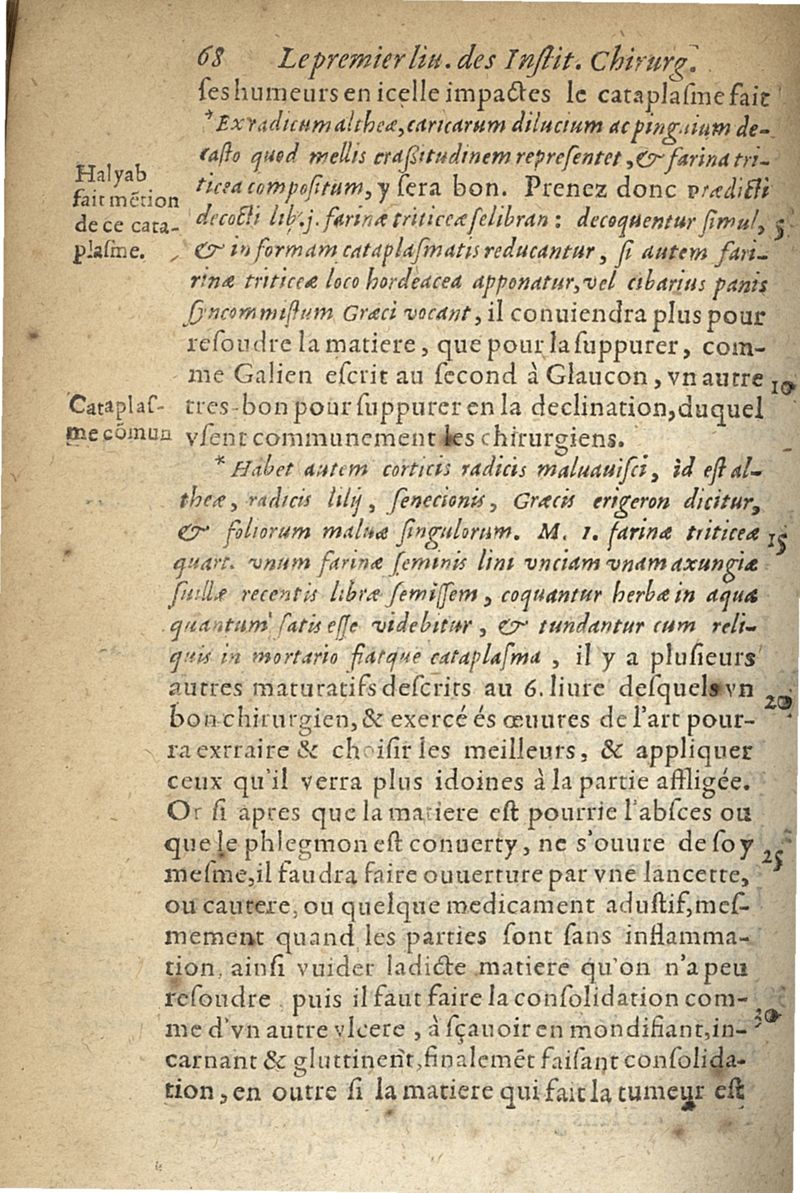 68 Le premier liu. des Instit. Chirurg.
ſes humeurs en icelle impactes le cataplaſme fait
*Ex radicum altheæ, caricarum dilucium ac pinguium de-
casto quod mellis craßitudinem repreſentet, & farina tri-
Halyab
fait mētion
de ce cata-
plaſme.
ticea compoſitum, y ſera bon. Prenez donc prædicti
decocti lib. j. farinæ triticeæ ſelibran: decoquentur ſimul, 5
& in formam cataplaſmatis reducantur, ſi autem fari-
rinæ triticeæ loco hordeacea apponatur, vel cibarius panis
ſyncommiſtum Græci vocant, il conuiendra plus pour
reſoudre la matiere, que pour la ſuppurer, com-
me Galien eſcrit au ſecond à Glaucon, vn autre 10
Cataplaſ-
me cōmun
tres-bon pour ſuppurer en la declination, duquel
vſent communement les chirurgiens.
*Habet autem corticis radicis maluauiſci, id eſt al-
theæ, radicis lilij, ſenecionis, Græcis erigeron dicitur,
& foliorum maluæ ſingulorum. M. 1. farinæ triticeæ 15
quart. vnum farinæ ſeminis lini vnciam vnam axungiæ
ſuillæ recentis libræ ſemiſſem, coquantur herbæ in aqua
quantum ſatis eſſe videbitur, & tundantur cum reli-
quis in mortario fiatque cataplaſma, il y a pluſieurs
autres maturatifs deſcrits au 6. liure deſquels vn
bon chirurgien, & exercé és œuures de l'art pour- 20
ra exrraire & choiſir les meilleurs, & appliquer
ceux qu'il verra plus idoines à la partie affligée.
Or ſi apres que la matiere eſt pourrie l'abſces ou
que le phlegmon eſt conuerty, ne s'ouure de ſoy 25
meſme, il faudra faire ouuerture par vne lancette,
ou cautere, ou quelque medicament aduſtif, meſ-
mement quand les parties ſont ſans inflamma-
tion, ainſi vuider ladicte matiere qu'on n'a peu
reſoudre puis il faut faire la conſolidation com-
me d'vn autre vlcere, à ſçauoir en mondifiant, in- 30
carnant & gluttinent, finalemēt faiſant conſolida-
tion, en outre ſi la matiere qui fait la tumeur eſt